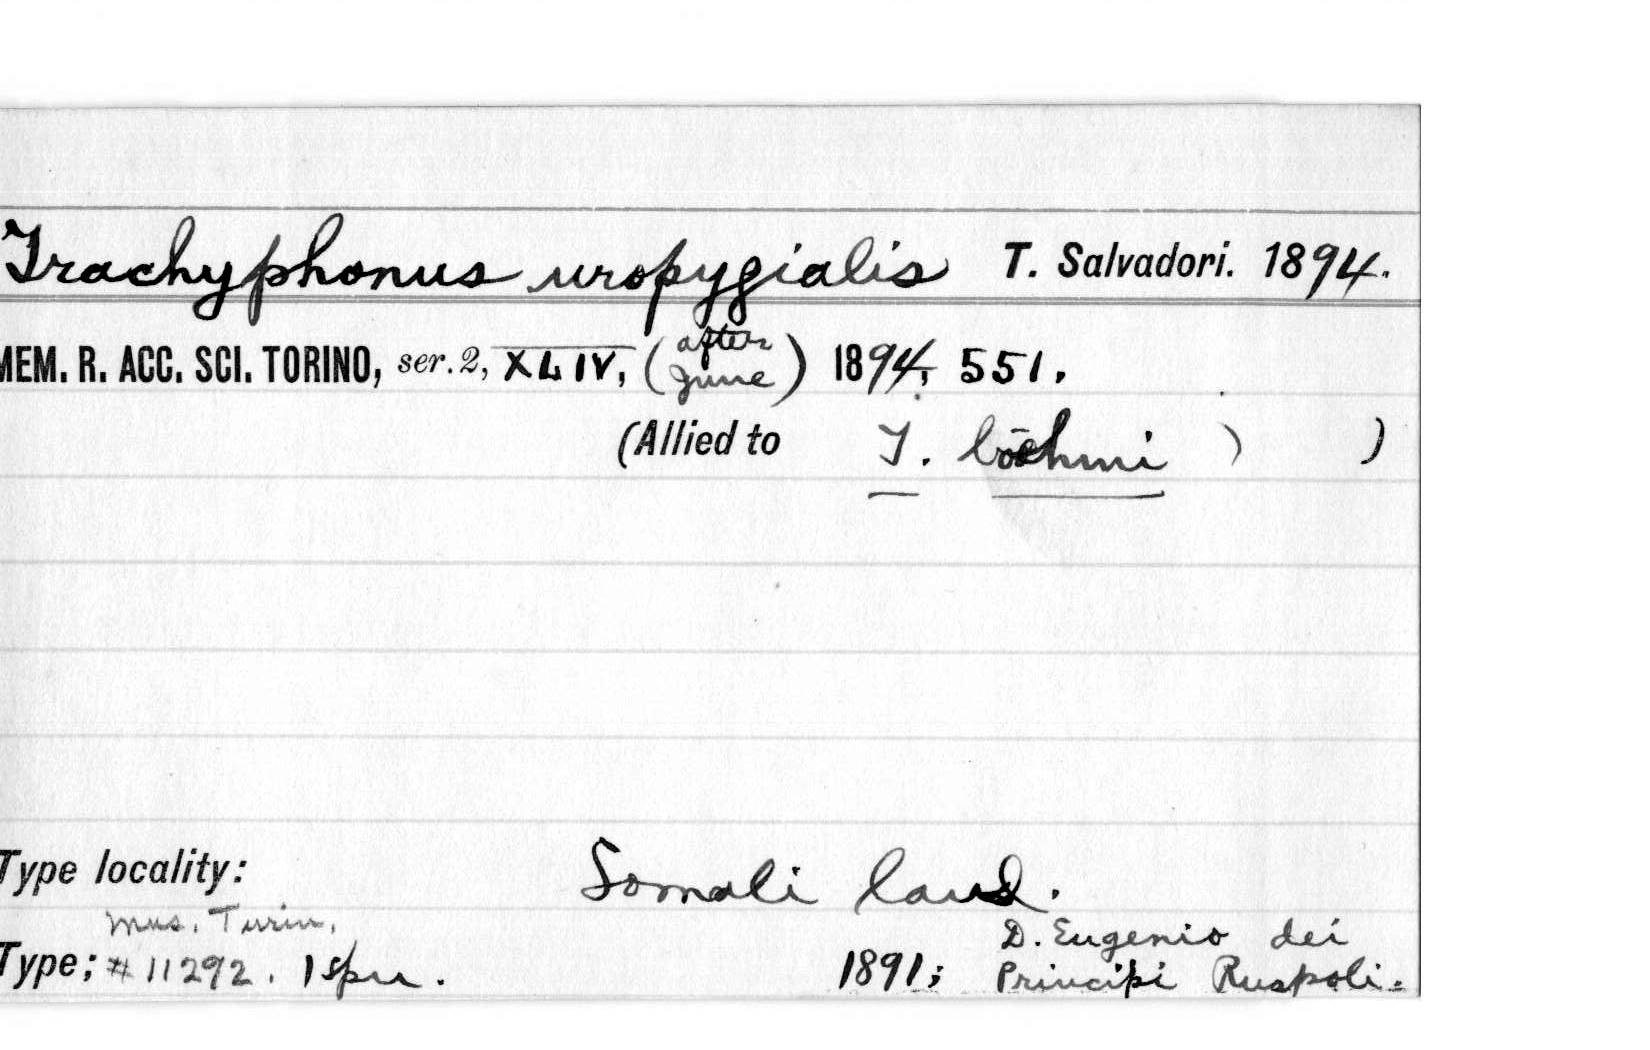 Trachyphonus uropygialis T. Salvadori. 1894.
MEM. R. ACC. SCI. TORINO, ser. 2, XLIV, (after June) 1894, 551.
(Allied to T. böehmi ) )
Type locality: Somali land.
Mus. Turin.
Type; #11292. 1 spm. 1891; D. Eugenio dei
Principi Ruspoli.